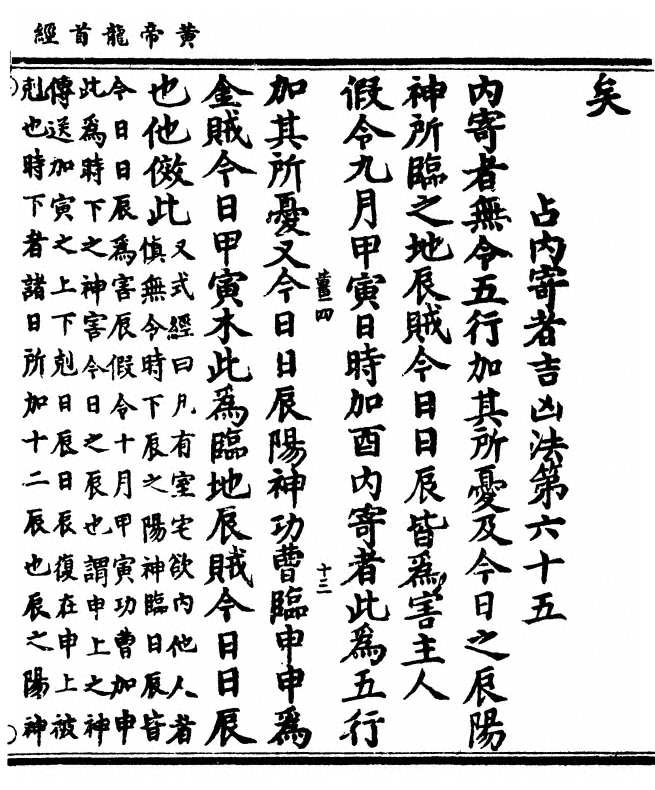 黄帝龍首經
矣
占内寄者吉凶法第六十五
内寄者無令五行加其所憂及今日之辰陽
神所臨之地辰賊今日日辰皆爲害主人
假令九月甲寅日時加酉内寄者此爲五行
薑二四
十三
加其所憂又今日日辰陽神功曹臨申申爲
金賊今日甲寅木此爲臨地辰賊今日日辰
也他倣此又式經曰凡有室宅欲内他人者
慎無令時下辰之陽神臨日辰皆
今日日辰爲害辰假令十月甲寅功曹加申
此爲時下之神害今日之辰也謂申上之神
傳送加寅之上下剋日辰日辰復在申上被
剋也時下者諸日所加十二辰也辰之陽神